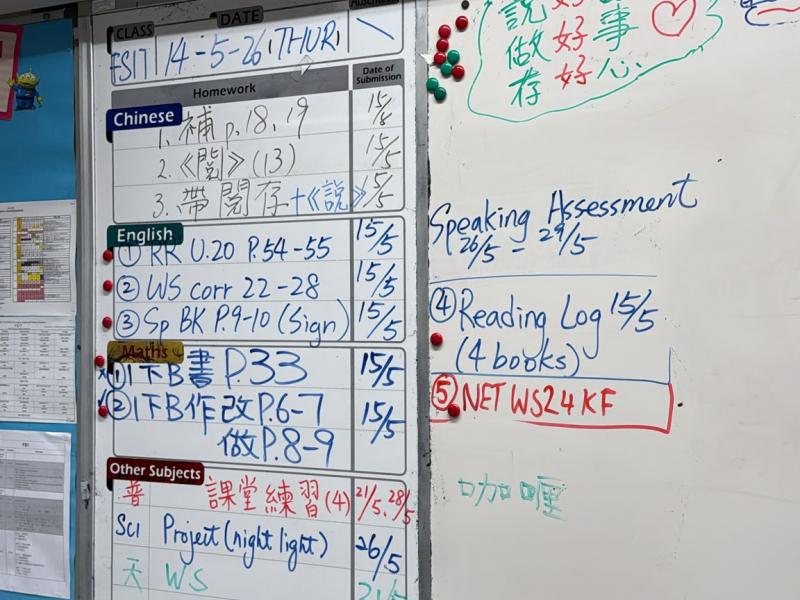 CLASS
DATE
FS17
14-5-26, THUR,
Homework
Date of Submission
Chinese
1. 補 p.18, 19 15/5
2.《閱》(13) 15/5
3. 帶閱存+《說》 15/5
English
① RR U.20 P.54-55 15/5
② WS corr 22-28 15/5
③ Sp BK P.9-10 (Sign) 15/5
Maths
① 1下B書 P.33 15/5
② 1下B作 改P.6-7 15/5
做P.8-9
Other Subjects
普 課堂練習(4) 21/5, 28/5
Sci Project (night light) 26/5
天 WS 21/5
說好事
做好事
存好心
Speaking Assessment
26/5 - 29/5
④ Reading Log 15/5
(4 books)
⑤ NET WS24 KF
咖喱